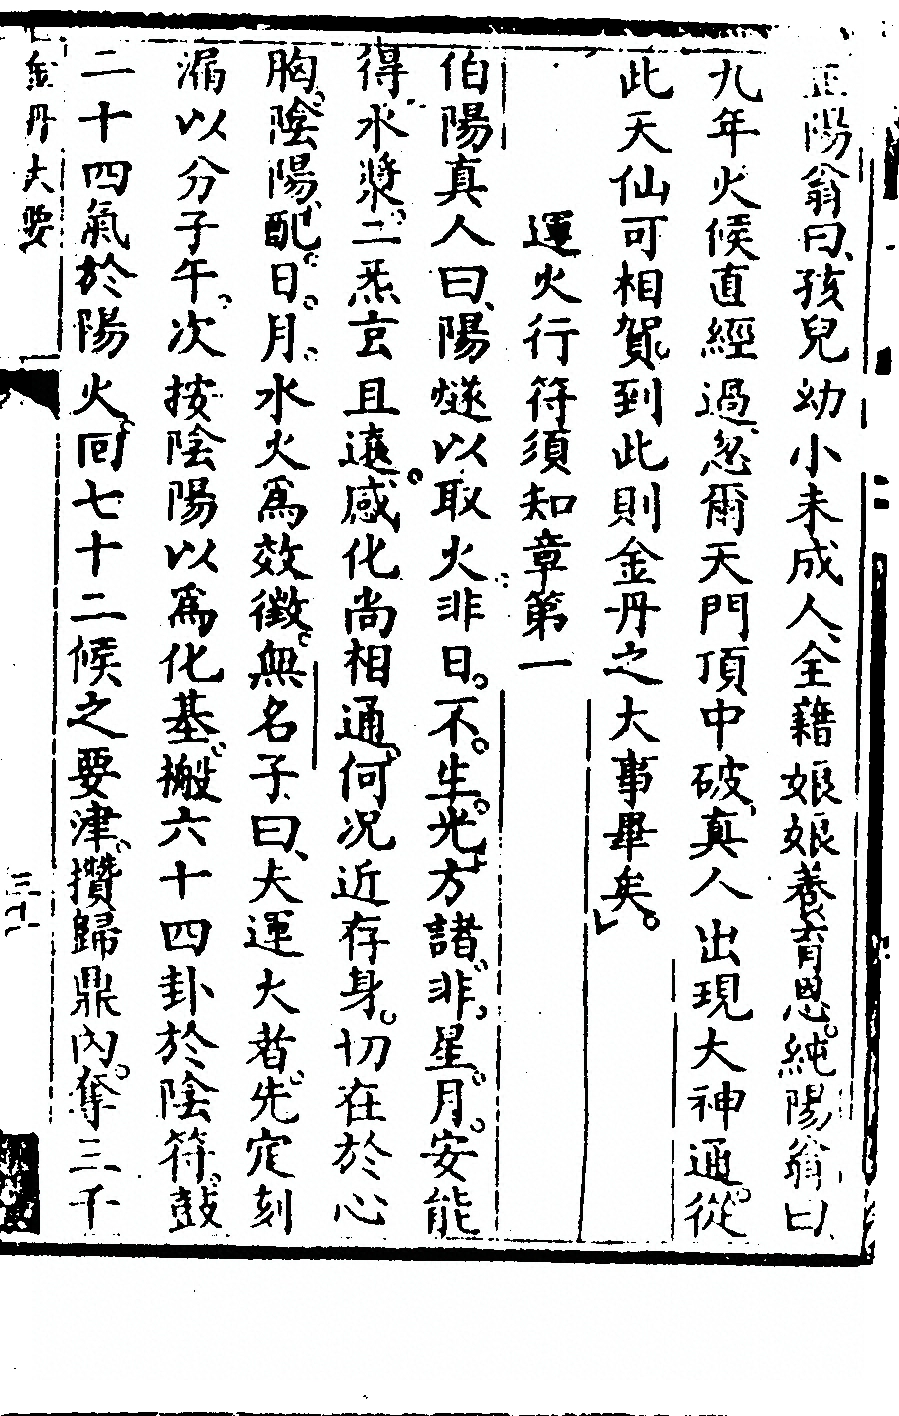 正陽翁曰孩兒幼小未成人全藉娘娘養育恩純陽翁曰
九年火候直經過忽爾天門頂中破真人出現大神通從
此天仙可相賀到此則金丹之大事畢矣
運火行符須知章第一
伯陽真人曰陽燧以取火非日不生光方諸非星月安能
得水漿二炁玄且遠感化尚相通何況近存身切在於心
胸陰陽配日月水火爲效徵無名子曰夫運火者先定刻
漏以分子午次按陰陽以爲化基搬六十四卦於陰符鼓
二十四氣於陽火回七十二候之要津攢歸鼎內奪三千
金丹大要
三十